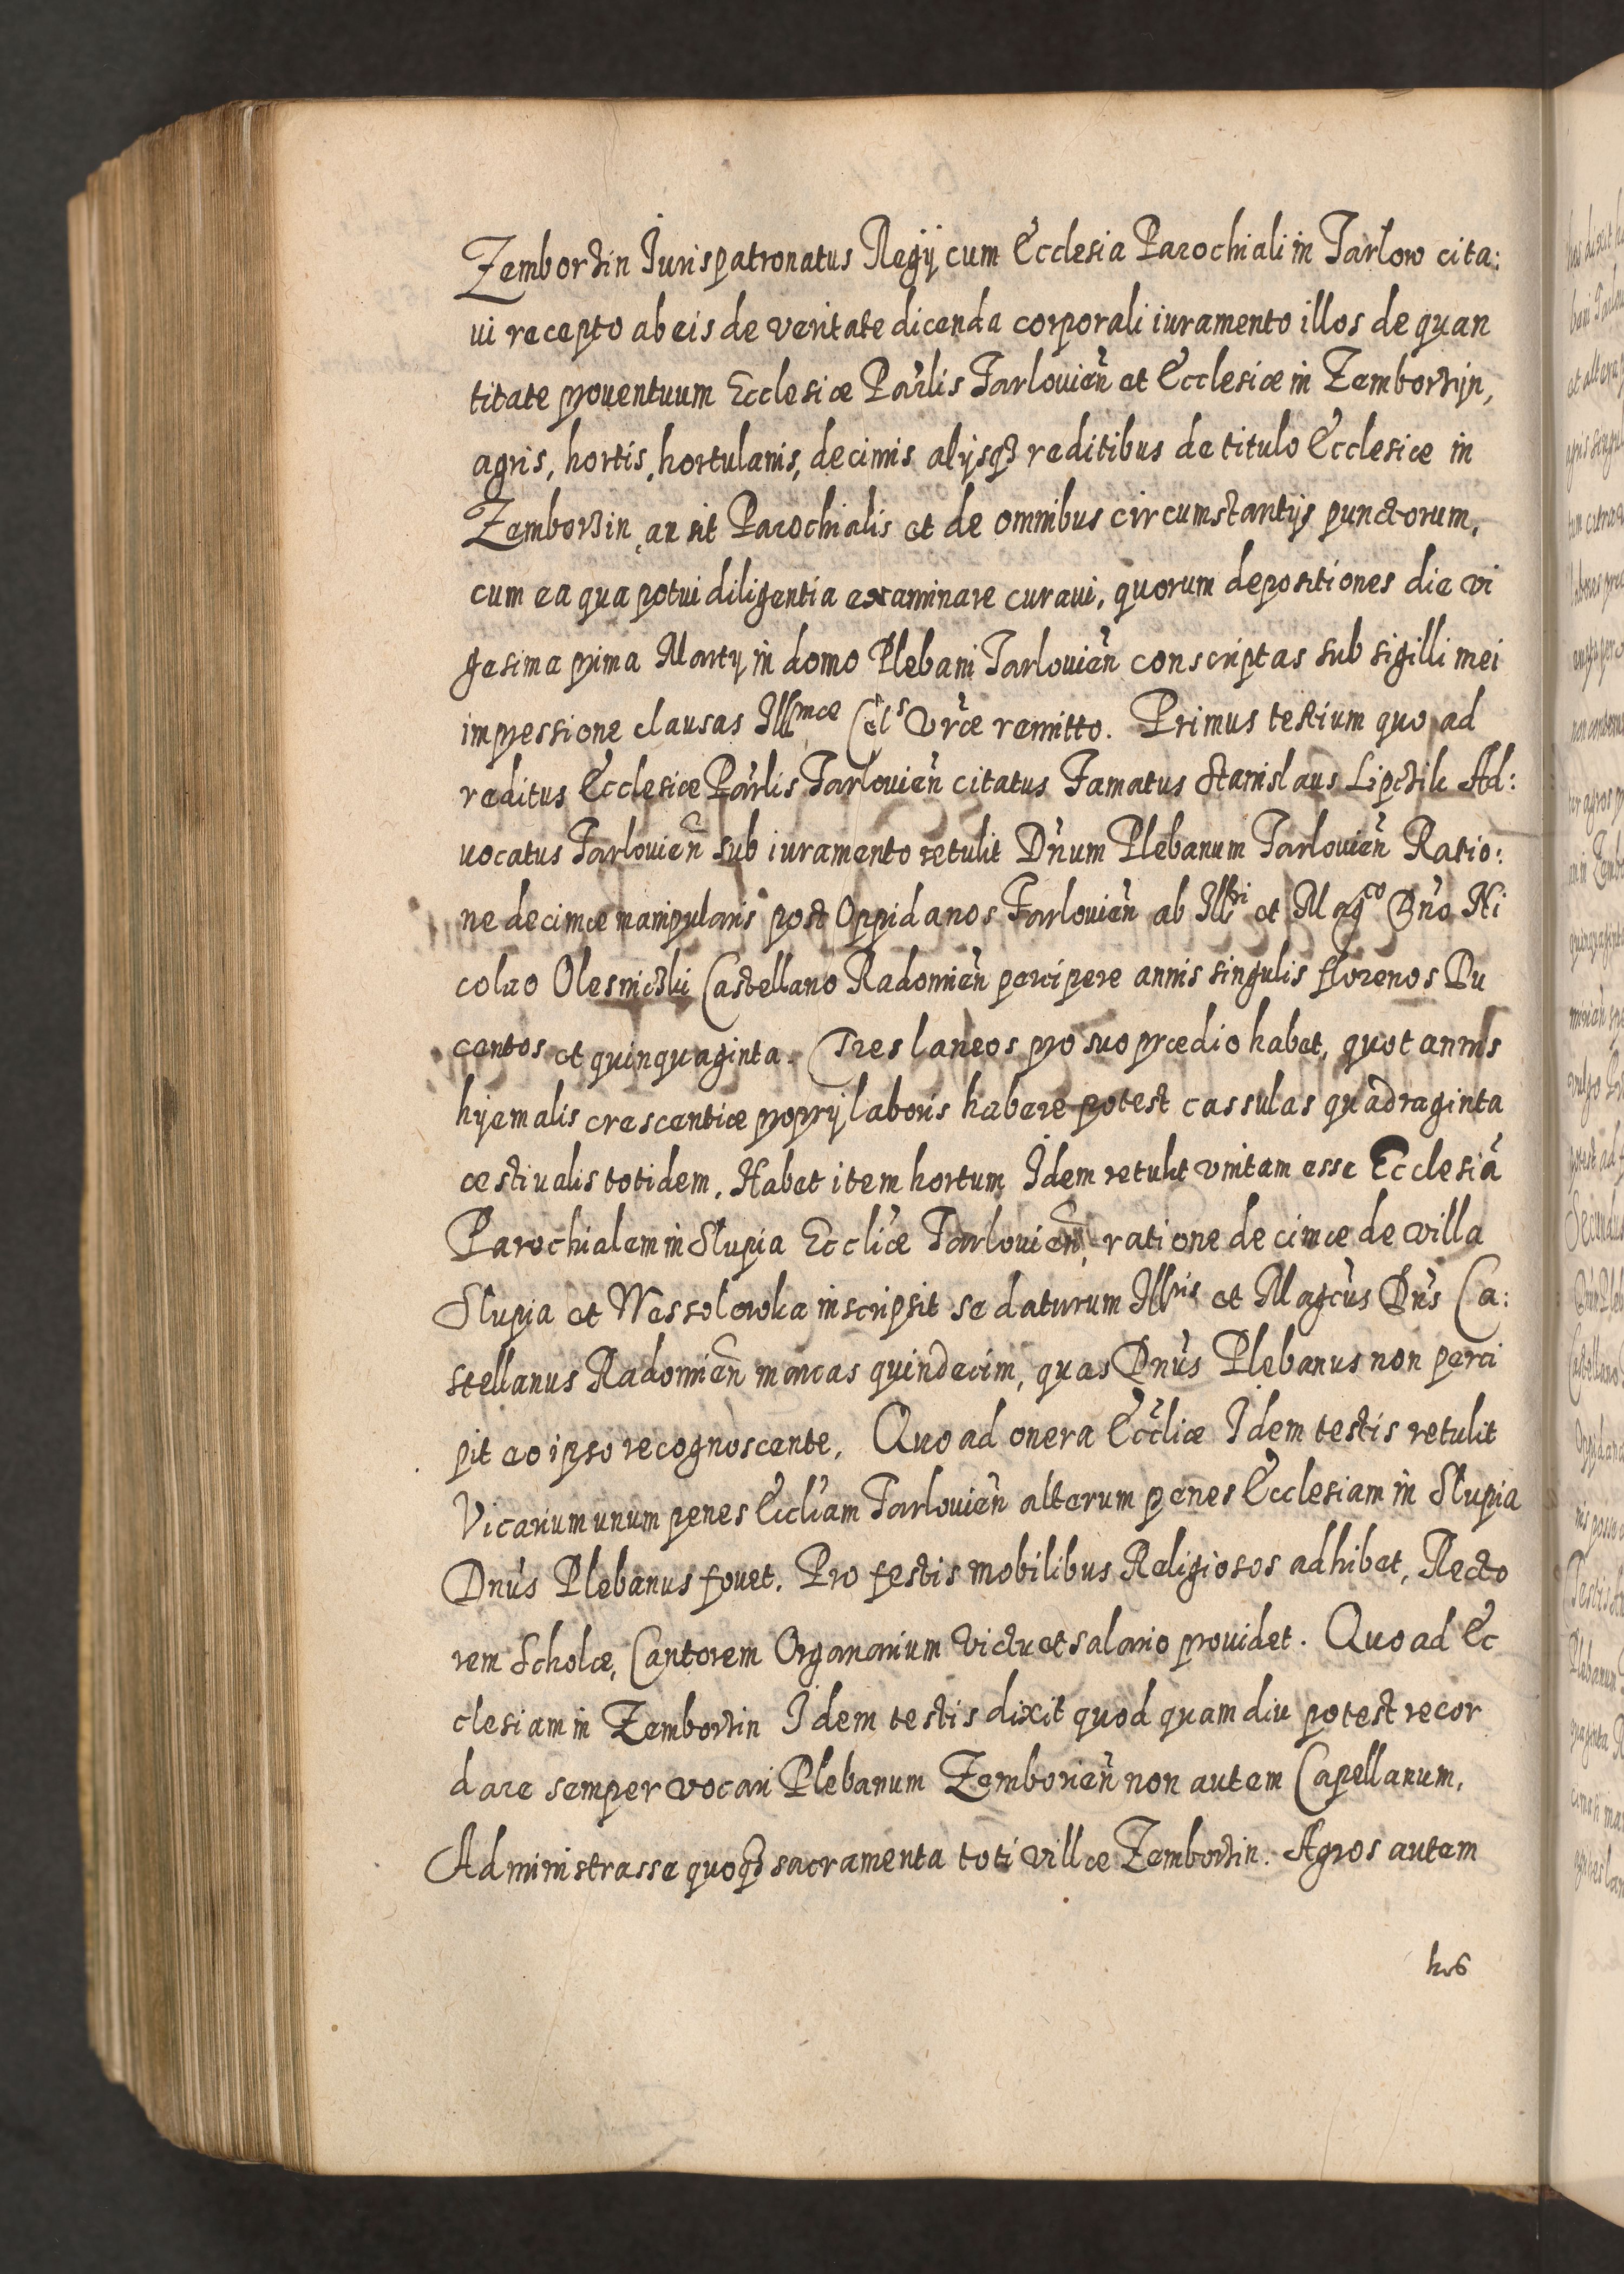 Zemborzin Jurispatronatus Regÿ cum Ecclesia Parochiali in Tarlow cita:
ui recepto ab eis de veritate dicenda corporali iuramento illos de quan
titate prouentuum Ecclesiæ Parlis Tarlouien̄ et Ecclesiæ in Zemborzyn,
agris, hortis, hortulanis, decimis alijsqȝ reditibus de titulo Ecclesiæ in
Zemborzin, an sit Parochialis et de omnibus circumstantijs punctorum,
cum ea qua potui diligentia examinare curaui, quorum depositiones die vi
gesima prima Martÿ in domo Plebani Tarlouien̄ conscriptas sub sigilli mei
impressione clausas Illmæ Cels Vræ remitto. Primus testium quo ad
reditus Ecclesiæ Parlis Tarlouien̄ citatus Famatus Stanislaus Lipczik Ad:
uocatus Tarlouien̄ sub iuramento retulit Dnum Plebanum Tarlouien̄ Ratio:
ne decimæ manipularis post Oppidanos Tarlouien̄ ab Illri et Magco Dno Ni
colao Olesniczki Castellano Radomien̄ percipere annis singulis florenos Du
centos et quinquaginta. Tres laneos pro suo prædio habet, quot annis
hyemalis crescentiæ proprÿ laboris habere potest cassulas quadraginta
æstiualis totidem. Habet item hortum Idem retulit vnitam esse Ecclesiā
Parochialem in Slupia Eccliæ Tarlouien̄, ratione decimæ de villa
Slupia et Wessolowka inscripsit se daturum Illris et Magcus Dnus Ca:
stellanus Radomien̄ marcas quindecim, quas Dnus Plebanus non perci
pit eo ipso recognoscente. Quo ad onera Eccliæ Idem testis retulit
Vicarium unum penes Eccliam Tarlouien̄ alterum penes Ecclesiam in Slupia
Dnus Plebanus fouet. Pro festis mobilibus Religiosos adhibet, Recto
rem Scholæ, Cantorem Organarium victu et salario prouidet. Quo ad Ec
clesiam in Zemborzin Idem testis dixit quod quam diu potest recor
dare semper vocari Plebanum Zemborien̄ non autem Capellanum,
Administrasse quoqȝ sacramenta toti villæ Zemborzin. Agros autem
hos